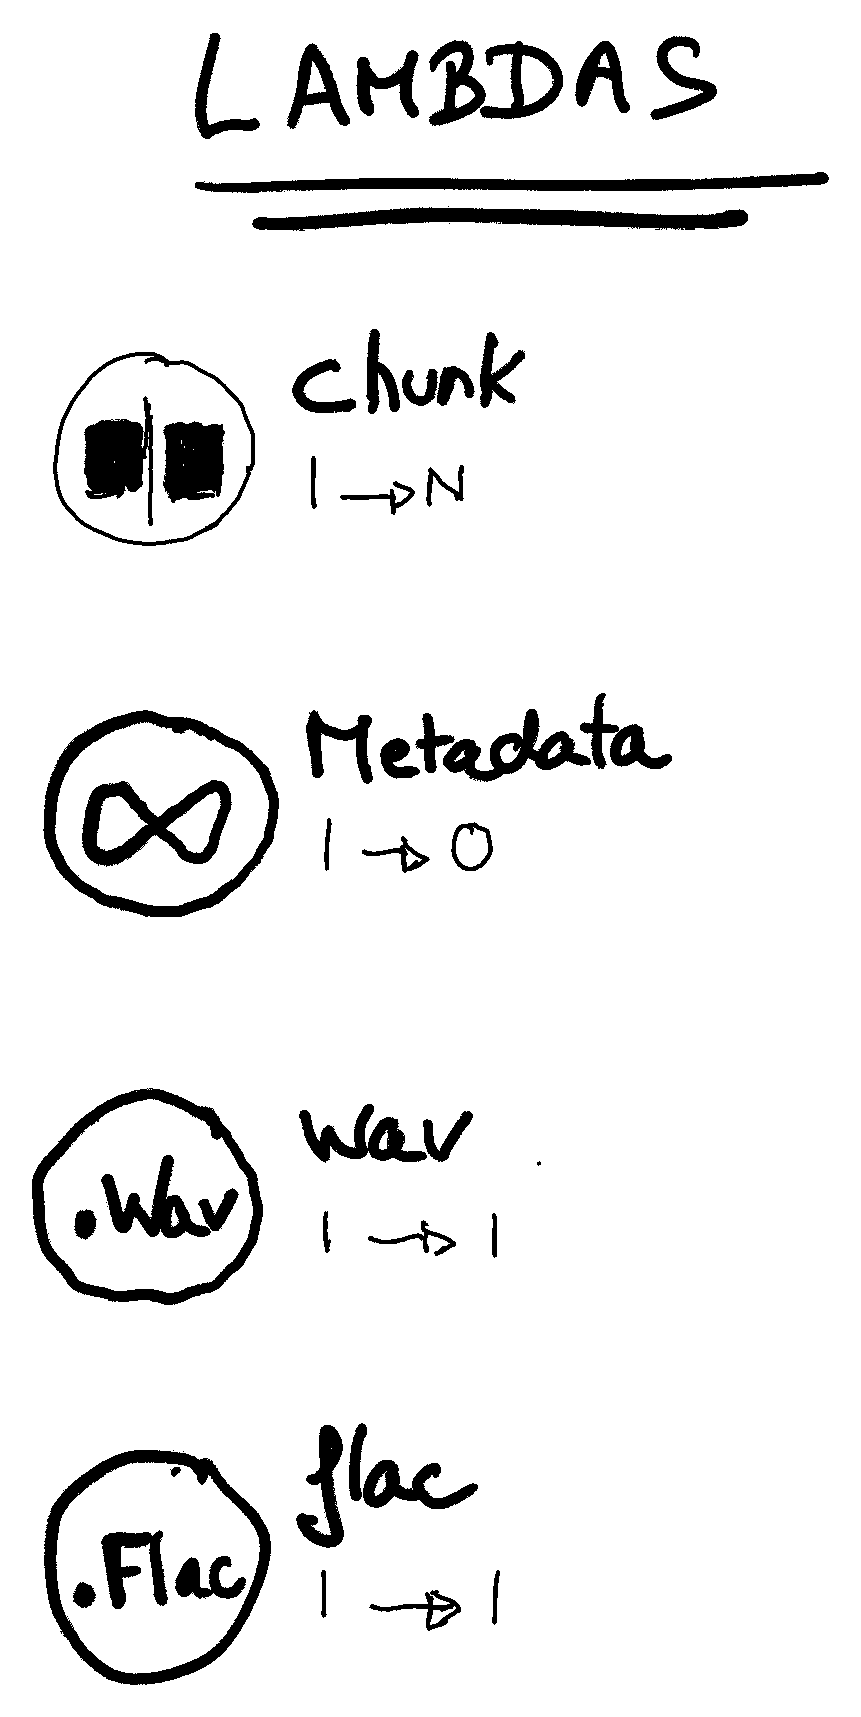 LAMBDAS
chunk
1 → N
Metadata
1 → 0
.Wav
Wav
1 → 1
.Flac
flac
1 → 1